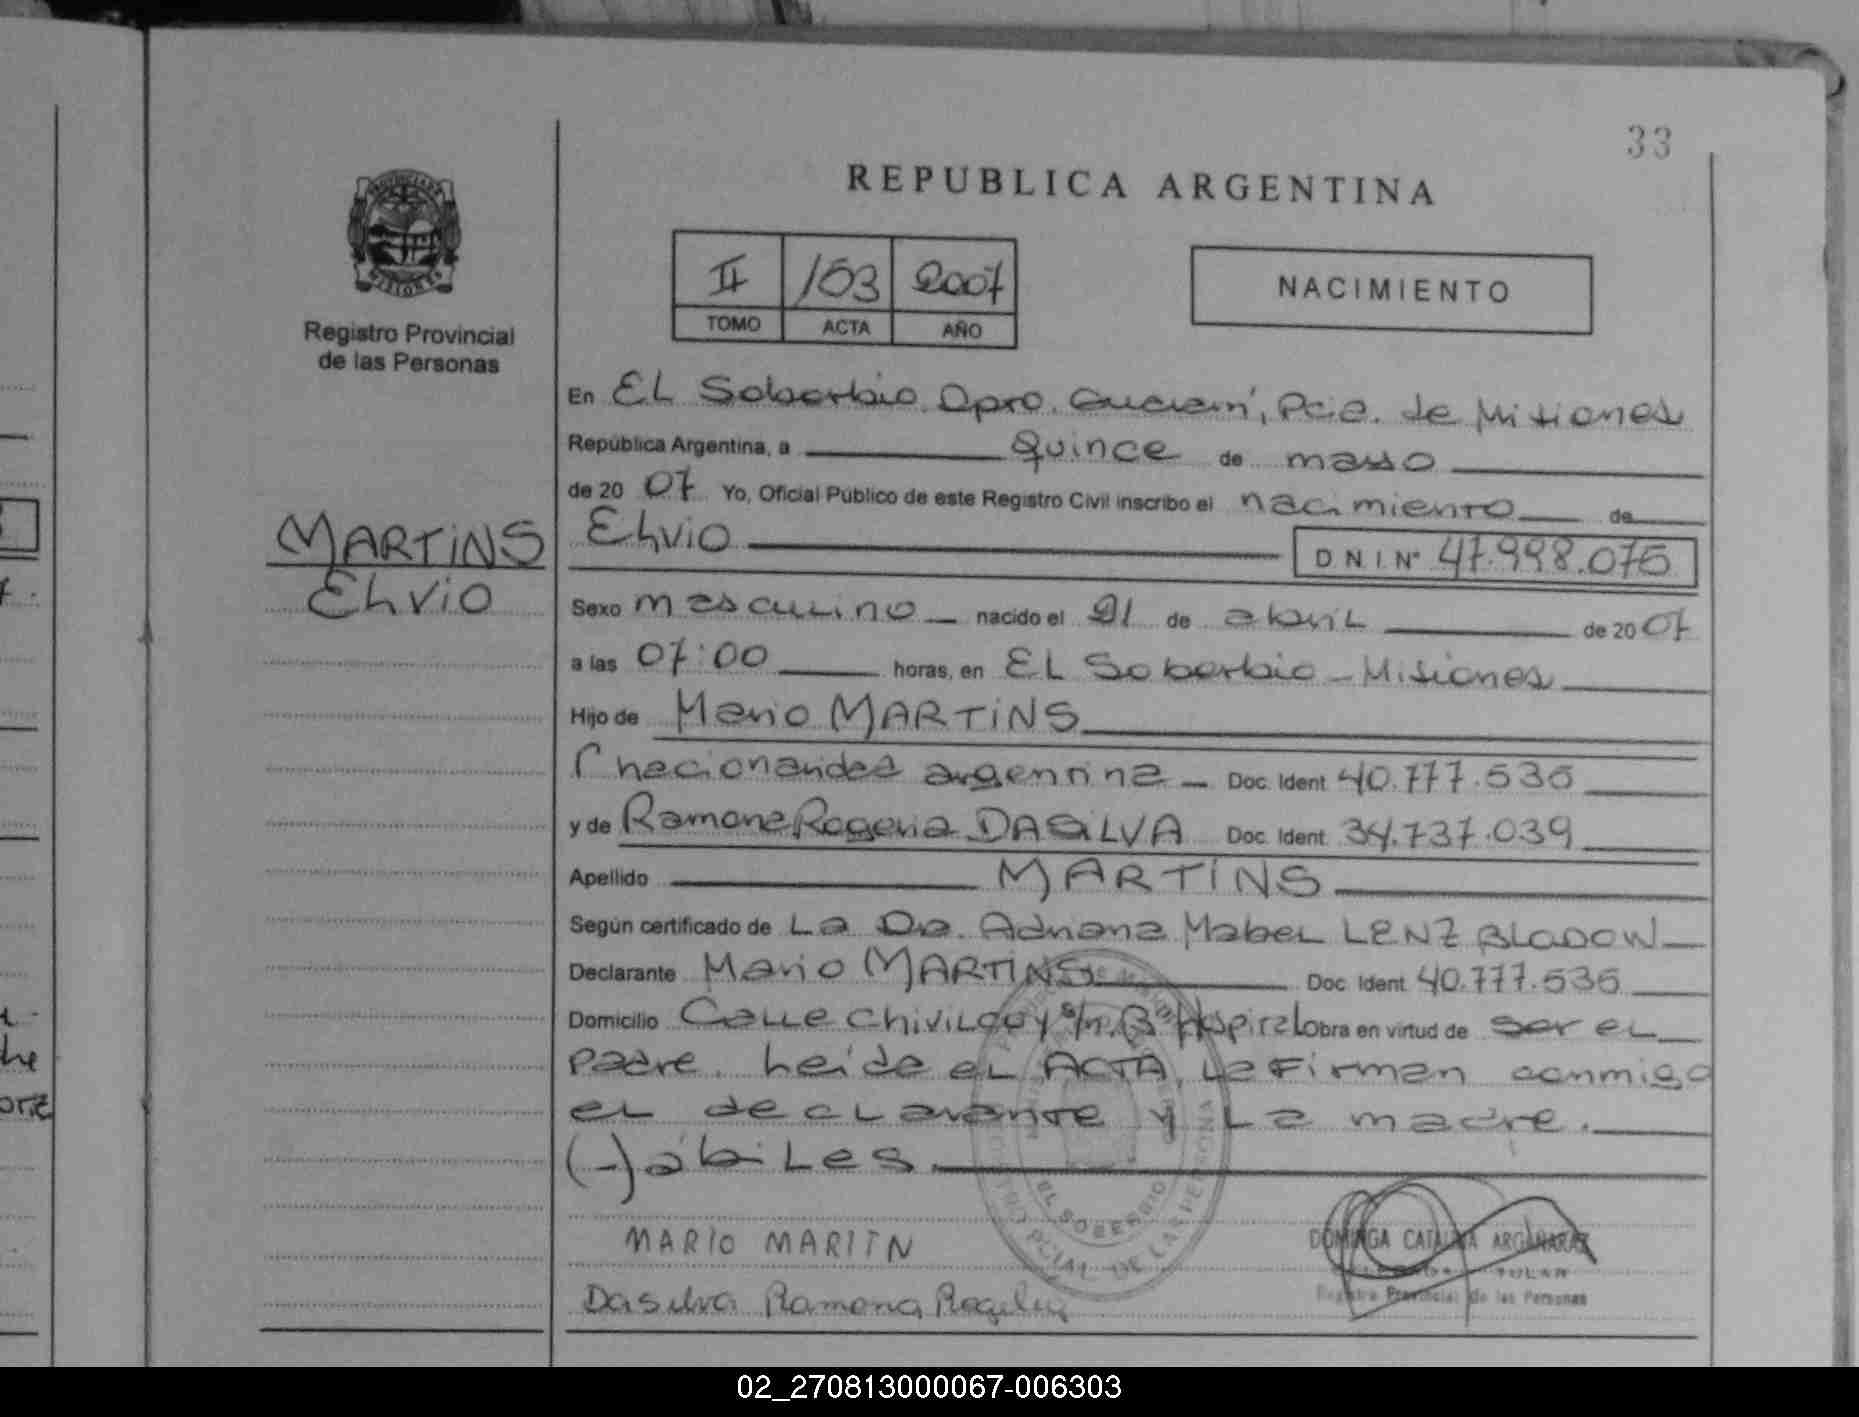 33
REPUBLICA ARGENTINA
PROVINCIA DE
MISIONES
Registro Provincial
de las Personas
II 103 2007
TOMO ACTA AÑO
NACIMIENTO
En EL Soberbio, Dpto. Guaraní, Pcia. de Misiones
República Argentina, a Quince de mayo
de 20 07 Yo, Oficial Público de este Registro Civil inscribo el nacimiento de
MARTiNS
Elvio
Elvio D.N.I.Nº 47.998.075
Sexo masculino nacido el 21 de abril de 20 07
a las 07:00 horas, en EL Soberbio - Misiones
Hijo de Mario MARTiNS
nacionalidad argentina - Doc. Ident. 40.777.535
y de Ramona Rogeria DASiLVA Doc. Ident. 34.737.039
Apellido MARTiNS
Según certificado de La Dra. Adriana Mabel LENZ BLADOW
Declarante Mario MARTiNS Doc. Ident. 40.777.535
Domicilio Calle Chivilcoy s/n. Bº Hospital obra en virtud de ser el
padre. Leída el ACTA, La Firman conmigo
el declarante y La madre.
(-) ábiles
EL SOBERBIO
MARIO MARTIN
Dasilva Ramona
DOMINGA CATALINA ARGAÑARAZ
Registro Provincial de las Personas
02_270813000067-006303